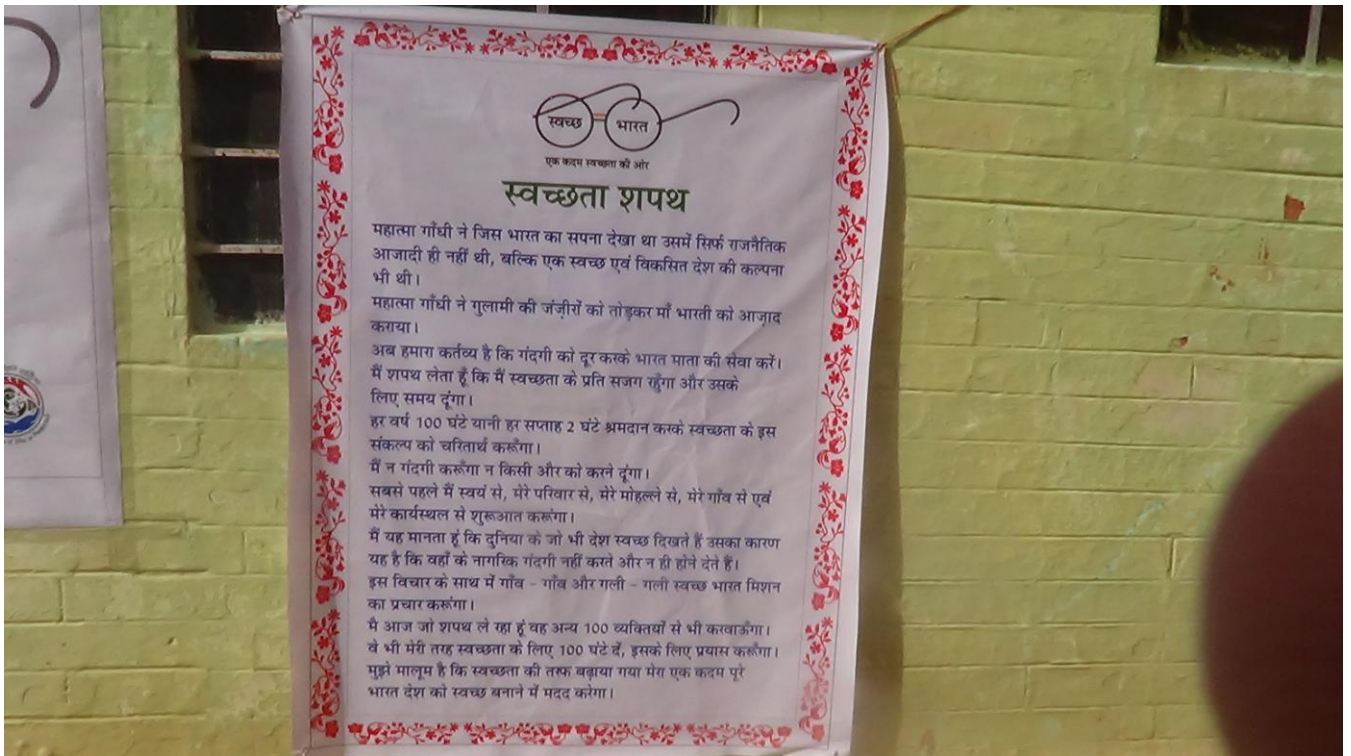 स्वच्छ भारत
एक कदम स्वच्छता की ओर
स्वच्छता शपथ
महात्मा गाँधी ने जिस भारत का सपना देखा था उसमें सिर्फ राजनैतिक
आजादी ही नहीं थी, बल्कि एक स्वच्छ एवं विकसित देश की कल्पना
भी थी।
महात्मा गाँधी ने गुलामी की जंज़ीरों को तोड़कर माँ भारती को आज़ाद
कराया।
अब हमारा कर्तव्य है कि गंदगी को दूर करके भारत माता की सेवा करें।
मैं शपथ लेता हूँ कि मैं स्वच्छता के प्रति सजग रहुँगा और उसके
लिए समय दूंगा।
हर वर्ष 100 घंटे यानी हर सप्ताह 2 घंटे श्रमदान करके स्वच्छता के इस
संकल्प को चरितार्थ करूँगा।
मैं न गंदगी करूँगा न किसी और को करने दूंगा।
सबसे पहले मैं स्वयं से, मेरे परिवार से, मेरे मोहल्ले से, मेरे गाँव से एवं
मेरे कार्यस्थल से शुरूआत करूंगा।
मैं यह मानता हूं कि दुनिया के जो भी देश स्वच्छ दिखते हैं उसका कारण
यह है कि वहाँ के नागरिक गंदगी नहीं करते और न ही होने देते हैं।
इस विचार के साथ में गाँव - गाँव और गली - गली स्वच्छ भारत मिशन
का प्रचार करूंगा।
मै आज जो शपथ ले रहा हूं वह अन्य 100 व्यक्तियों से भी करवाऊँगा।
वे भी मेरी तरह स्वच्छता के लिए 100 घंटे दें, इसके लिए प्रयास करूँगा।
मुझे मालूम है कि स्वच्छता की तरफ बढ़ाया गया मेरा एक कदम पूरे
भारत देश को स्वच्छ बनाने में मदद करेगा।